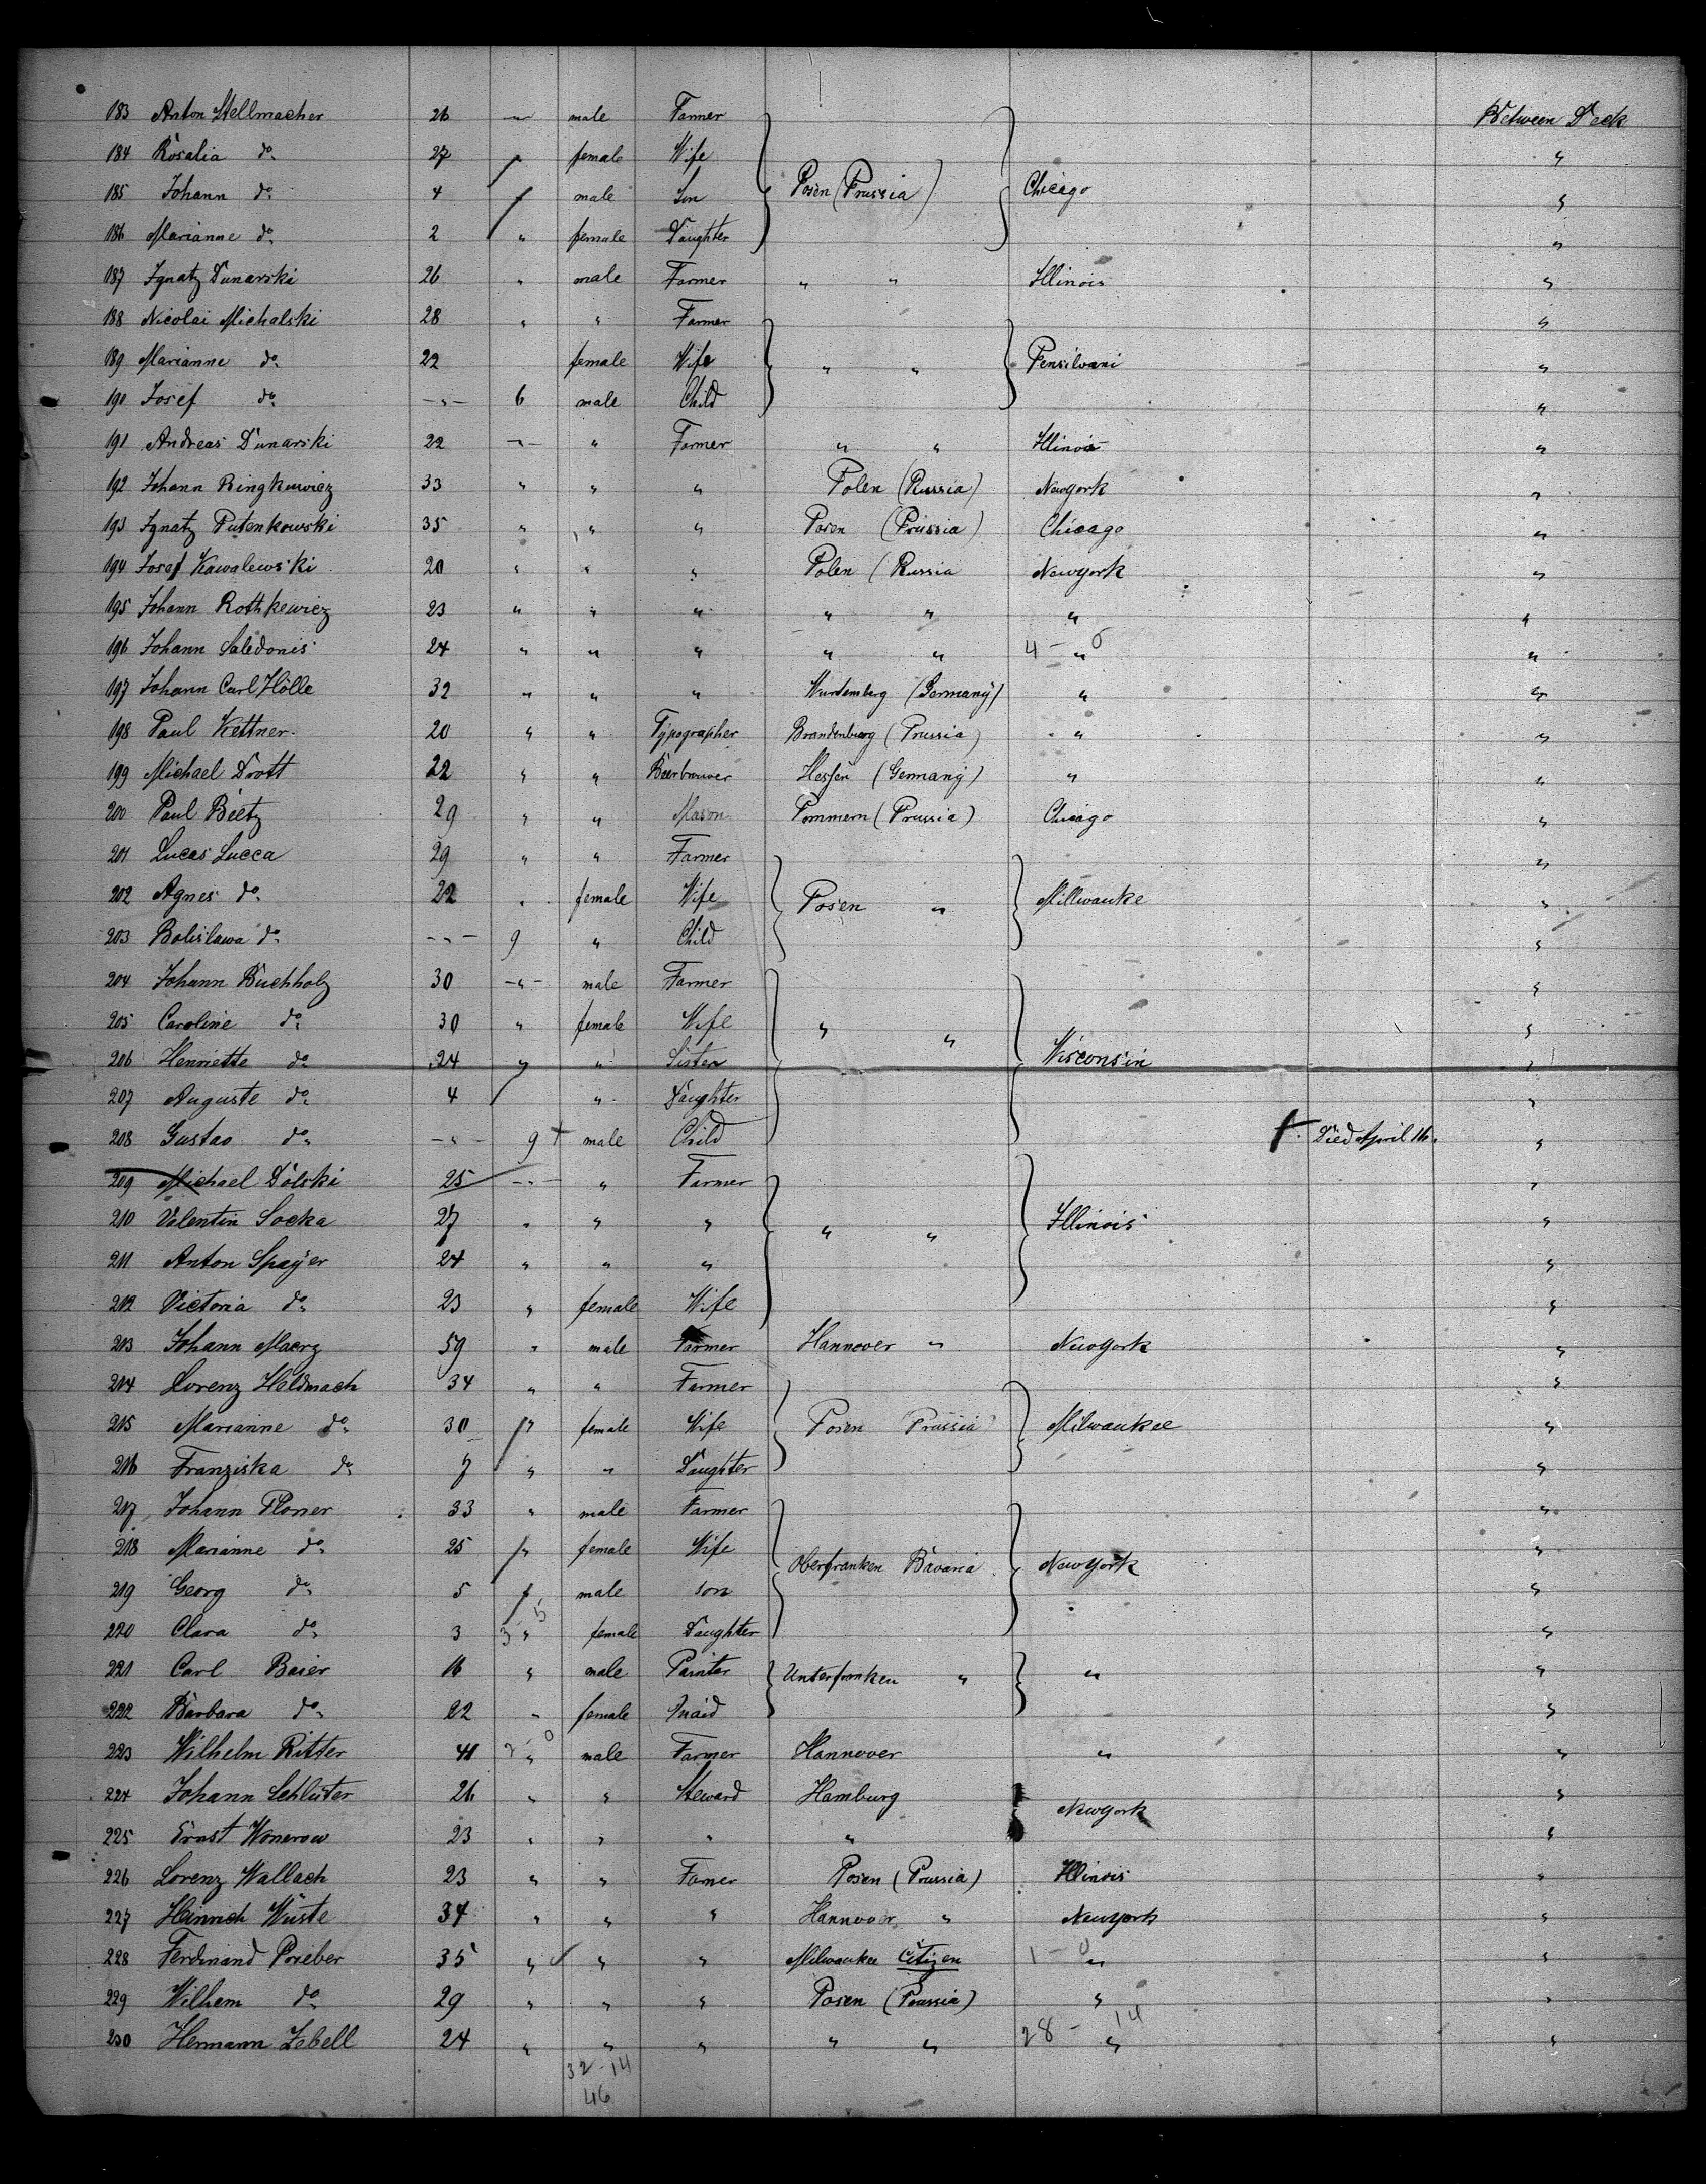 183 Anton Stellmacher 26 — male Farmer Between Deck
184 Rosalia do 27 " female Wife "
185 Johann do 4 " male Son Posen (Prussia) Chicago "
186 Marianne do 2 " female Daughter "
187 Ignatz Dunarski 26 " male Farmer " " Illinois "
188 Nicolai Michalski 28 " " Farmer "
189 Marianne do 22 female Wife " " Pensilvani "
190 Josef do -"- 6 male Child "
191 Andreas Dunarski 22 -"- " Farmer " " Illinois "
192 Johann Ringkewicz 33 " " " Polen (Russia) Newyork "
193 Ignatz Putenkowski 35 " " " Posen (Prussia) Chicago "
194 Josef Kawalewski 20 " " " Polen (Russia Newyork "
195 Johann Rothkewicz 23 " " " " " " "
196 Johann Saledonis 24 " " " " " 4 - " 0 "
197 Johann Carl Hölle 32 " " " Wurdemberg (Germany) " "
198 Paul Kettner 20 " " Typographer Brandenburg (Prussia) " "
199 Michael Drott 22 " " Beerbrauer Hessen (Germany) " "
200 Paul Beetz 29 " " Mason Pommern (Prussia) Chicago "
201 Lucas Lucca 29 " " Farmer "
202 Agnes do 22 " female Wife Posen " Millwauke "
203 Bolislawa do -"- 9 " Child "
204 Johann Buchholz 30 -"- male Farmer "
205 Caroline do 30 " female Wife " " "
206 Henriette do 24 " " Sister Wisconsin "
207 Auguste do 4 " Daughter "
208 Gustav do -"- 9 + male Child †. Died April 16. "
209 Michael Dolski 25 -"- " Farmer "
210 Valentin Socka 27 " " " " " Illinois "
211 Anton Spayer 24 " " " "
212 Victoria do 23 " female Wife "
213 Johann Maerz 59 " male Farmer Hannover " Newyork "
214 Lorenz Heldmach 34 " " Farmer "
215 Marianne do 30 " female Wife Posen Prussia Milwaukee "
216 Franziska do 7 " " Daughter "
217 Johann Ploner 33 " male Farmer "
218 Marianne do 25 " female Wife Oberfranken Bavaria Newyork "
219 Georg do 5 male son "
220 Clara do 3 3 " 5 female Daughter "
221 Carl Baier 16 " male Painter Unterfranken " " "
222 Barbara do 22 " female Maid "
223 Wilhelm Ritter 41 2 - 0 " male Farmer Hannover " "
224 Johann Schlüter 26 " " Steward Hamburg Newyork "
225 Ernst Wonerow 23 " " " " "
226 Lorenz Wallach 23 " " Farmer Posen (Prussia) Illinois "
227 Heinrich Wüste 34 " " " Hannover " Newyork "
228 Ferdinand Prieber 35 " ✓ " " Milwaukee Citizen 1 - 0 " "
229 Wilhem do 29 " " " Posen (Prussia) " "
230 Hermann Zebell 24 " " " " " 28 - 14 " "
32 - 14
46